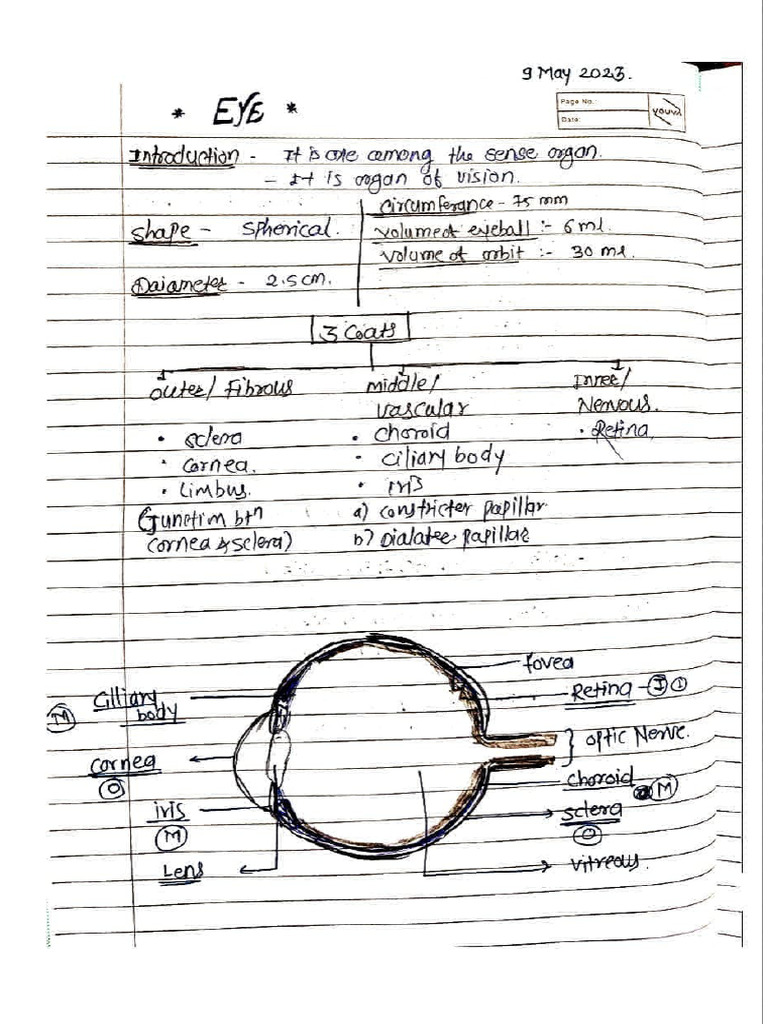 9 May 2023.
* EYE *
Page No.
Date:
YOUVA
Introduction - It is one among the sense organ.
- It is organ of vision.
Circumferance - 75 mm
Shape - Spherical.
Volume of eyeball :- 6 ml.
Volume of orbit :- 30 ml.
Daiameter - 2.5 cm.
3 Coats
Outer/ Fibrous
• Sclera
• Cornea.
• Limbus.
(Junction btn
Cornea & Sclera)
Middle/
Vascular
• Choroid
• Ciliary body
• Iris
a) Constricter papillar
b) Dialatee papillae
Inner/
Nervous.
• Retina
fovea
Cilliary
body
M
Retina - I
Optic Nerve.
Cornea
O
Choroid
M
iris
M
Sclera
O
Lens
Vitreous.